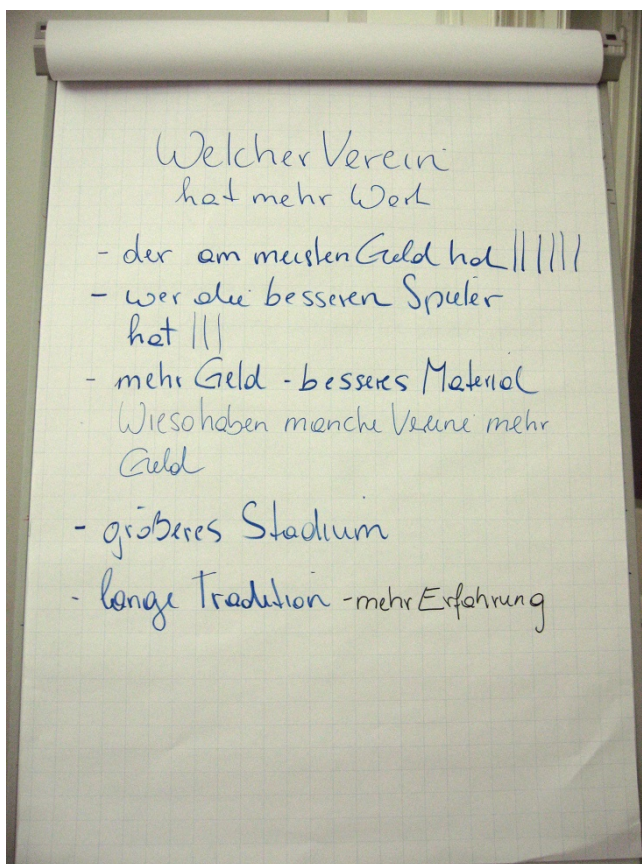 Welcher Verein
hat mehr Wert
- der am meisten Geld hat |||||||
- wer die besseren Spieler
hat |||
- mehr Geld - besseres Material
Wieso haben manche Vereine mehr
Geld
- größeres Stadium
- lange Tradition - mehr Erfahrung